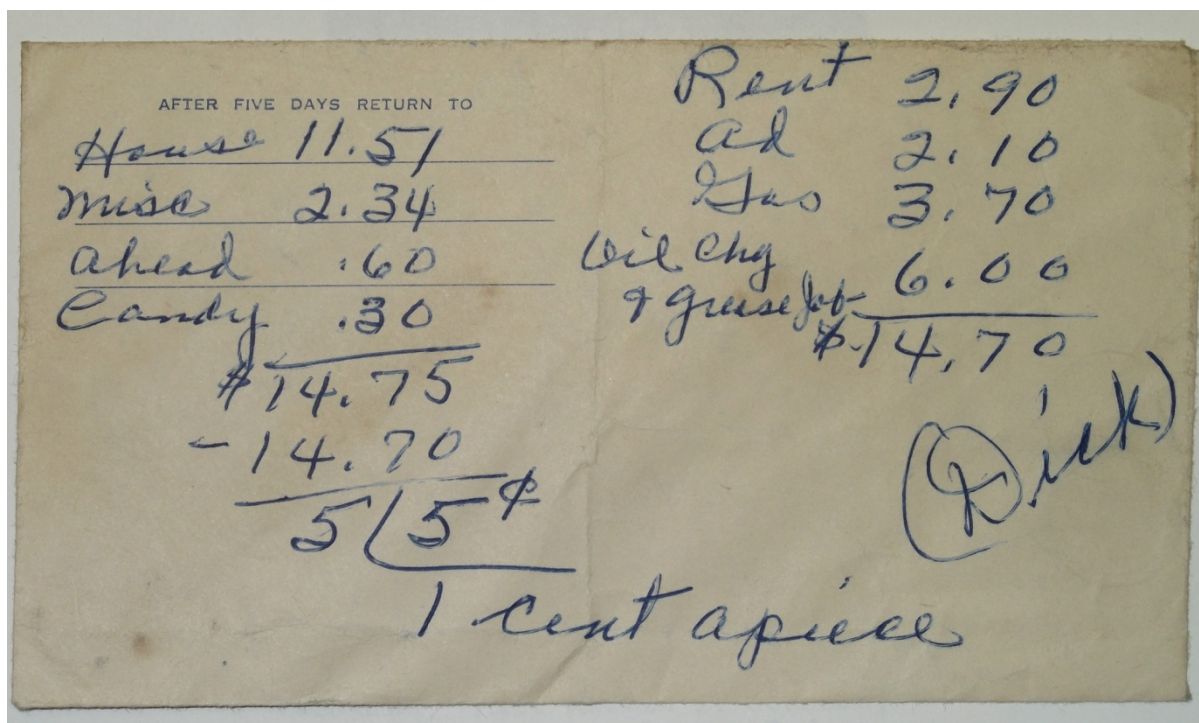 AFTER FIVE DAYS RETURN TO
House 11.51
Misc 2.34
Ahead .60
Candy .30
$14.75
-14.70
5 5¢
1 cent apiece
Rent 2.90
Ad 2.10
Gas 3.70
Oil Chg
& Grease Job 6.00
$14.70
(Dick)